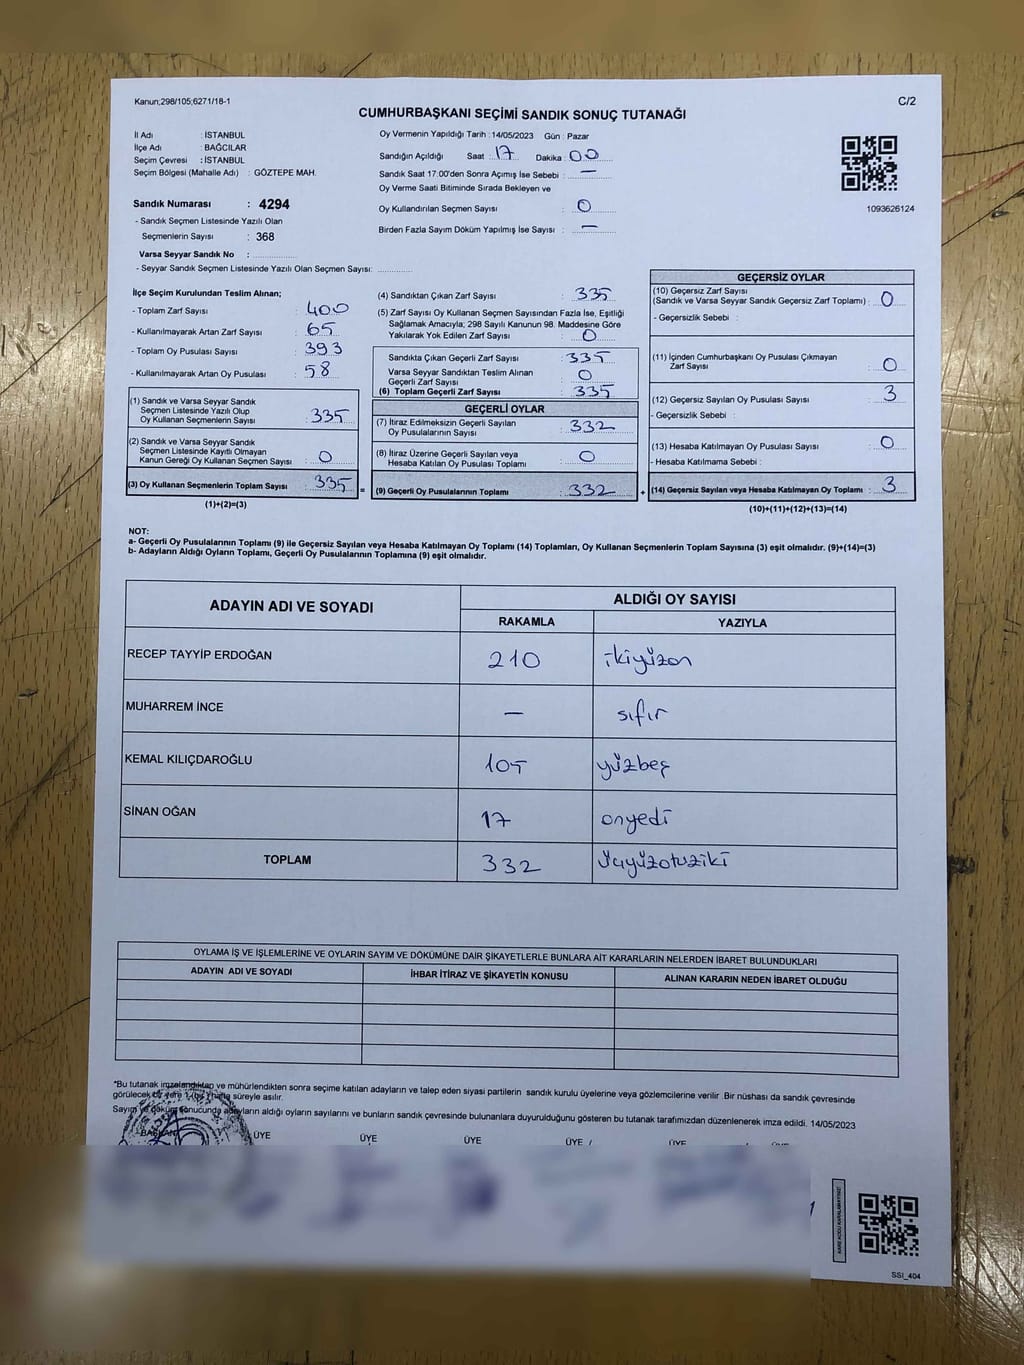 Kanun;298/105;6271/18-1
C/2
CUMHURBAŞKANI SEÇİMİ SANDIK SONUÇ TUTANAĞI
İl Adı : İSTANBUL
İlçe Adı : BAĞCILAR
Seçim Çevresi : İSTANBUL
Seçim Bölgesi (Mahalle Adı) : GÖZTEPE MAH.
Sandık Numarası : 4294
- Sandık Seçmen Listesinde Yazılı Olan
Seçmenlerin Sayısı : 368
Varsa Seyyar Sandık No :
- Seyyar Sandık Seçmen Listesinde Yazılı Olan Seçmen Sayısı:
Oy Vermenin Yapıldığı Tarih : 14/05/2023 Gün : Pazar
Sandığın Açıldığı Saat : 17 Dakika : 00
Sandık Saat 17:00'den Sonra Açımış İse Sebebi : —
Oy Verme Saati Bitiminde Sırada Bekleyen ve
Oy Kullandırılan Seçmen Sayısı : 0
Birden Fazla Sayım Döküm Yapılmış İse Sayısı : —
1093626124
İlçe Seçim Kurulundan Teslim Alınan;
- Toplam Zarf Sayısı : 400
- Kullanılmayarak Artan Zarf Sayısı : 65
- Toplam Oy Pusulası Sayısı : 393
- Kullanılmayarak Artan Oy Pusulası : 58
(1) Sandık ve Varsa Seyyar Sandık
Seçmen Listesinde Yazılı Olup
Oy Kullanan Seçmenlerin Sayısı : 335
(2) Sandık ve Varsa Seyyar Sandık
Seçmen Listesinde Kayıtlı Olmayan
Kanun Gereği Oy Kullanan Seçmen Sayısı : 0
(3) Oy Kullanan Seçmenlerin Toplam Sayısı : 335 =
(1)+(2)=(3)
(4) Sandıktan Çıkan Zarf Sayısı : 335
(5) Zarf Sayısı Oy Kullanan Seçmen Sayısından Fazla İse, Eşitliği
Sağlamak Amacıyla; 298 Sayılı Kanunun 98. Maddesine Göre
Yakılarak Yok Edilen Zarf Sayısı : 0
Sandıkta Çıkan Geçerli Zarf Sayısı : 335
Varsa Seyyar Sandıktan Teslim Alınan
Geçerli Zarf Sayısı : 0
(6) Toplam Geçerli Zarf Sayısı : 335
GEÇERLİ OYLAR
(7) İtiraz Edilmeksizin Geçerli Sayılan
Oy Pusulalarının Sayısı : 332
(8) İtiraz Üzerine Geçerli Sayılan veya
Hesaba Katılan Oy Pusulası Toplamı : 0
(9) Geçerli Oy Pusulalarının Toplamı : 332 +
GEÇERSİZ OYLAR
(10) Geçersiz Zarf Sayısı
(Sandık ve Varsa Seyyar Sandık Geçersiz Zarf Toplamı) : 0
- Geçersizlik Sebebi :
(11) İçinden Cumhurbaşkanı Oy Pusulası Çıkmayan
Zarf Sayısı : 0
(12) Geçersiz Sayılan Oy Pusulası Sayısı : 3
- Geçersizlik Sebebi :
(13) Hesaba Katılmayan Oy Pusulası Sayısı : 0
- Hesaba Katılmama Sebebi :
(14) Geçersiz Sayılan veya Hesaba Katılmayan Oy Toplamı : 3
(10)+(11)+(12)+(13)=(14)
NOT:
a- Geçerli Oy Pusulalarının Toplamı (9) ile Geçersiz Sayılan veya Hesaba Katılmayan Oy Toplamı (14) Toplamları, Oy Kullanan Seçmenlerin Toplam Sayısına (3) eşit olmalıdır. (9)+(14)=(3)
b- Adayların Aldığı Oyların Toplamı, Geçerli Oy Pusulalarının Toplamına (9) eşit olmalıdır.
ADAYIN ADI VE SOYADI
ALDIĞI OY SAYISI
RAKAMLA YAZIYLA
RECEP TAYYİP ERDOĞAN 210 ikiyüzon
MUHARREM İNCE — sıfır
KEMAL KILIÇDAROĞLU 105 yüzbeş
SİNAN OĞAN 17 onyedi
TOPLAM 332 üçyüzotuziki
OYLAMA İŞ VE İŞLEMLERİNE VE OYLARIN SAYIM VE DÖKÜMÜNE DAİR ŞİKAYETLERLE BUNLARA AİT KARARLARIN NELERDEN İBARET BULUNDUKLARI
ADAYIN ADI VE SOYADI İHBAR İTİRAZ VE ŞİKAYETİN KONUSU ALINAN KARARIN NEDEN İBARET OLDUĞU
*Bu tutanak imzalandıktan ve mühürlendikten sonra seçime katılan adayların ve talep eden siyasi partilerin sandık kurulu üyelerine veya gözlemcilerine verilir. Bir nüshası da sandık çevresinde
görülecek bir yere 1 (bir) hafta süreyle asılır.
Sayım ve döküm sonucunda adayların aldığı oyların sayılarını ve bunların sandık çevresinde bulunanlara duyurulduğunu gösteren bu tutanak tarafımızdan düzenlenerek imza edildi. 14/05/2023
BAŞKAN ÜYE ÜYE ÜYE ÜYE ÜYE ÜYE
SSI_404